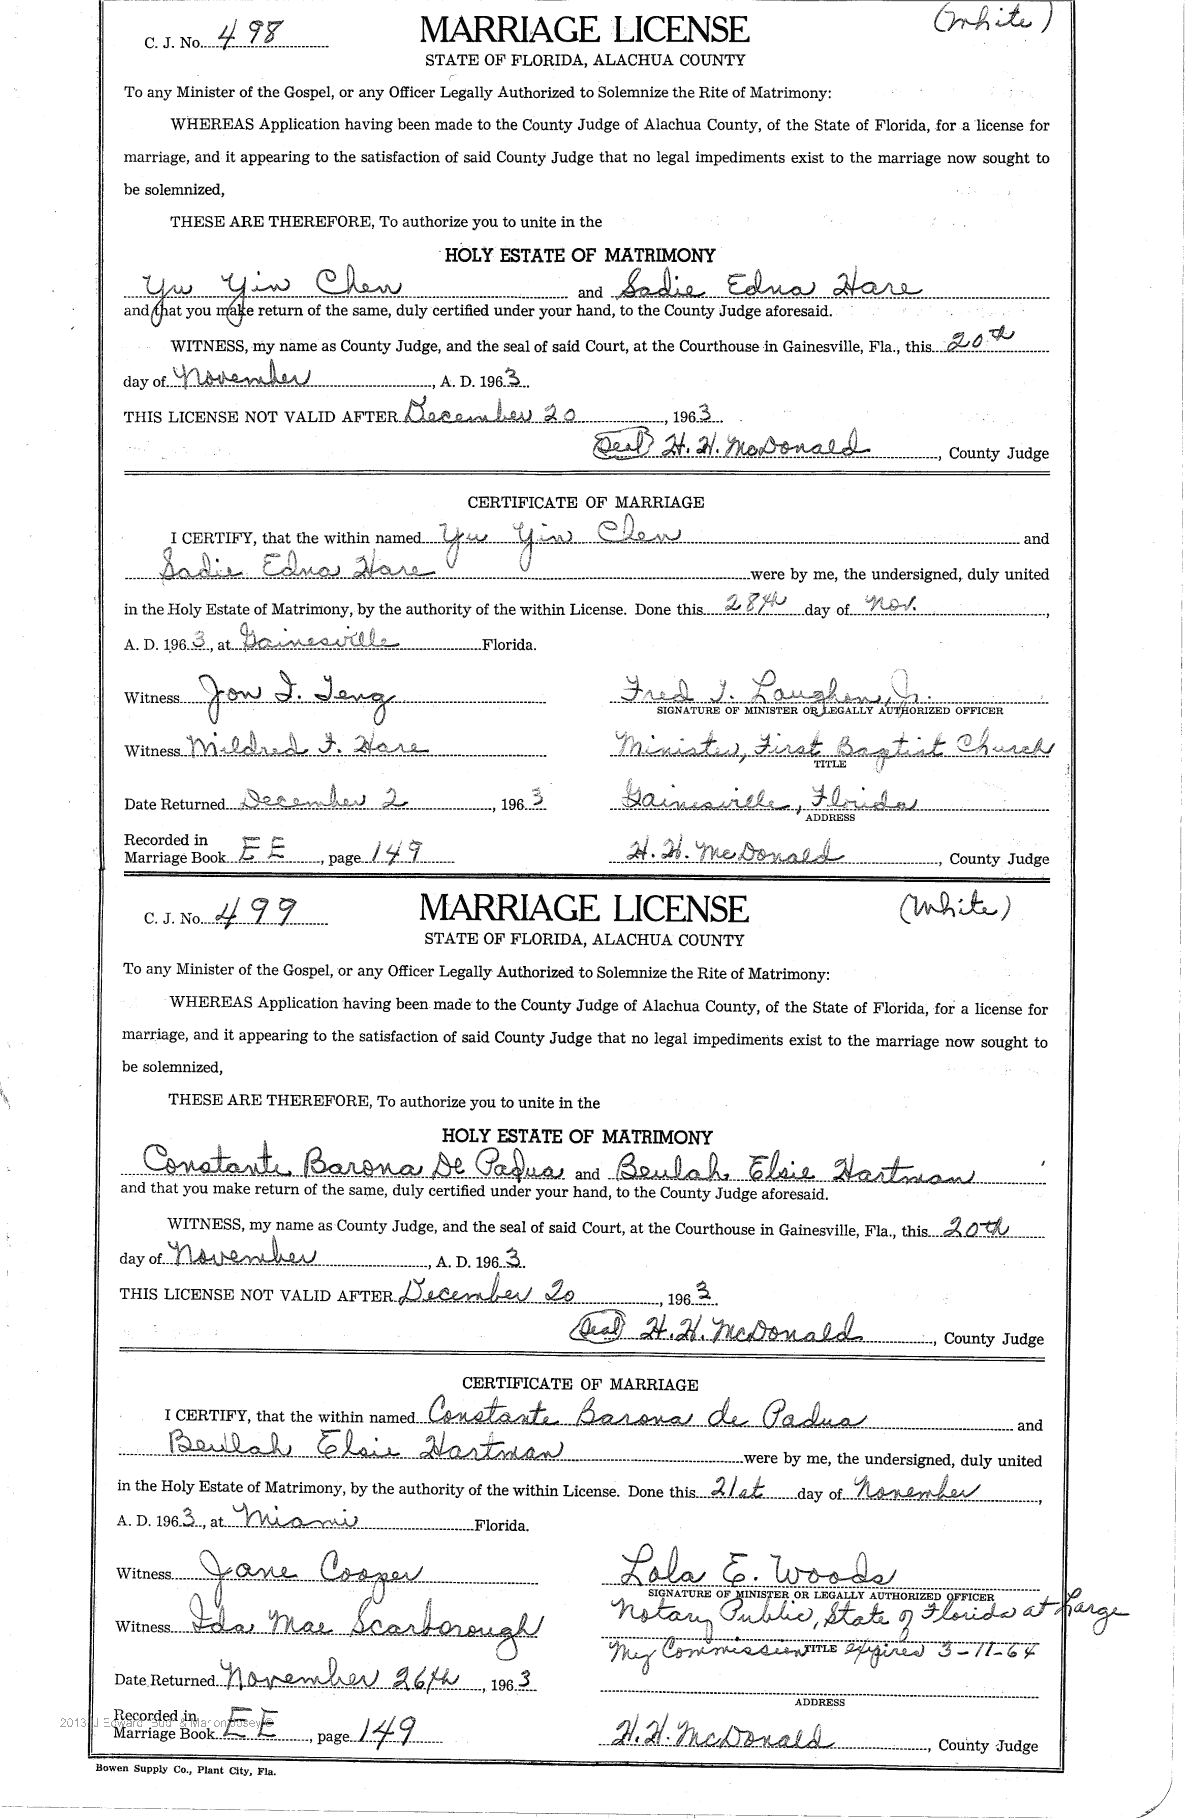 (White)
C. J. No. 498
MARRIAGE LICENSE
STATE OF FLORIDA, ALACHUA COUNTY
To any Minister of the Gospel, or any Officer Legally Authorized to Solemnize the Rite of Matrimony:
WHEREAS Application having been made to the County Judge of Alachua County, of the State of Florida, for a license for
marriage, and it appearing to the satisfaction of said County Judge that no legal impediments exist to the marriage now sought to
be solemnized,
THESE ARE THEREFORE, To authorize you to unite in the
HOLY ESTATE OF MATRIMONY
Yu Yin Chen and Sadie Edna Hare
and that you make return of the same, duly certified under your hand, to the County Judge aforesaid.
WITNESS, my name as County Judge, and the seal of said Court, at the Courthouse in Gainesville, Fla., this 20th
day of November, A. D. 1963.
THIS LICENSE NOT VALID AFTER December 20, 1963
(Seal) H. H. McDonald, County Judge
CERTIFICATE OF MARRIAGE
I CERTIFY, that the within named Yu Yin Chen and
Sadie Edna Hare were by me, the undersigned, duly united
in the Holy Estate of Matrimony, by the authority of the within License. Done this 28th day of Nov.,
A. D. 1963, at Gainesville Florida.
Witness Jon I. Teng
Fred T. Laughon, Jr.
SIGNATURE OF MINISTER OR LEGALLY AUTHORIZED OFFICER
Witness Mildred F. Hare
Minister, First Baptist Church
TITLE
Date Returned December 2, 1963
Gainesville, Florida
ADDRESS
Recorded in
Marriage Book EE, page 149
H. H. McDonald, County Judge
C. J. No. 499
MARRIAGE LICENSE
(White)
STATE OF FLORIDA, ALACHUA COUNTY
To any Minister of the Gospel, or any Officer Legally Authorized to Solemnize the Rite of Matrimony:
WHEREAS Application having been made to the County Judge of Alachua County, of the State of Florida, for a license for
marriage, and it appearing to the satisfaction of said County Judge that no legal impediments exist to the marriage now sought to
be solemnized,
THESE ARE THEREFORE, To authorize you to unite in the
HOLY ESTATE OF MATRIMONY
Constante Barona De Padua and Beulah Elsie Hartman
and that you make return of the same, duly certified under your hand, to the County Judge aforesaid.
WITNESS, my name as County Judge, and the seal of said Court, at the Courthouse in Gainesville, Fla., this 20th
day of November, A. D. 1963.
THIS LICENSE NOT VALID AFTER December 20, 1963
(Seal) H. H. McDonald, County Judge
CERTIFICATE OF MARRIAGE
I CERTIFY, that the within named Constante Barona de Padua and
Beulah Elsie Hartman were by me, the undersigned, duly united
in the Holy Estate of Matrimony, by the authority of the within License. Done this 21st day of November,
A. D. 1963, at Miami Florida.
Witness Jane Cooper
Lola E. Woods
SIGNATURE OF MINISTER OR LEGALLY AUTHORIZED OFFICER
Witness Ida Mae Scarborough
Notary Public, State of Florida at Large
My Commission expires 3-11-64
TITLE
Date Returned November 26th, 1963
ADDRESS
Recorded in
Marriage Book EE, page 149
H. H. McDonald, County Judge
Bowen Supply Co., Plant City, Fla.